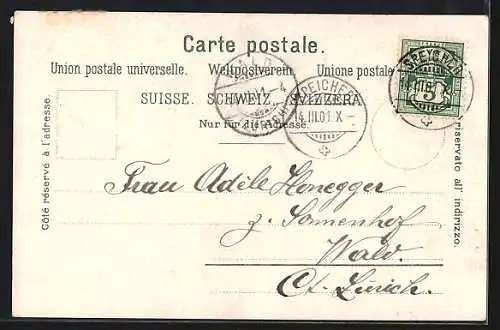 Carte postale.
Union postale universelle. Weltpostverein Unione postale
SUISSE. SCHWEIZ. SVIZZERA
Nur für die Adresse.
Côté réservé à l'adresse.
riservato all' indirizzo.
SPEICHER
14.III.01.X-
SPEICHER
5
WALD
Frau Adèle Honegger
z. Sonnenhof
Wald.
Ct. Zürich.